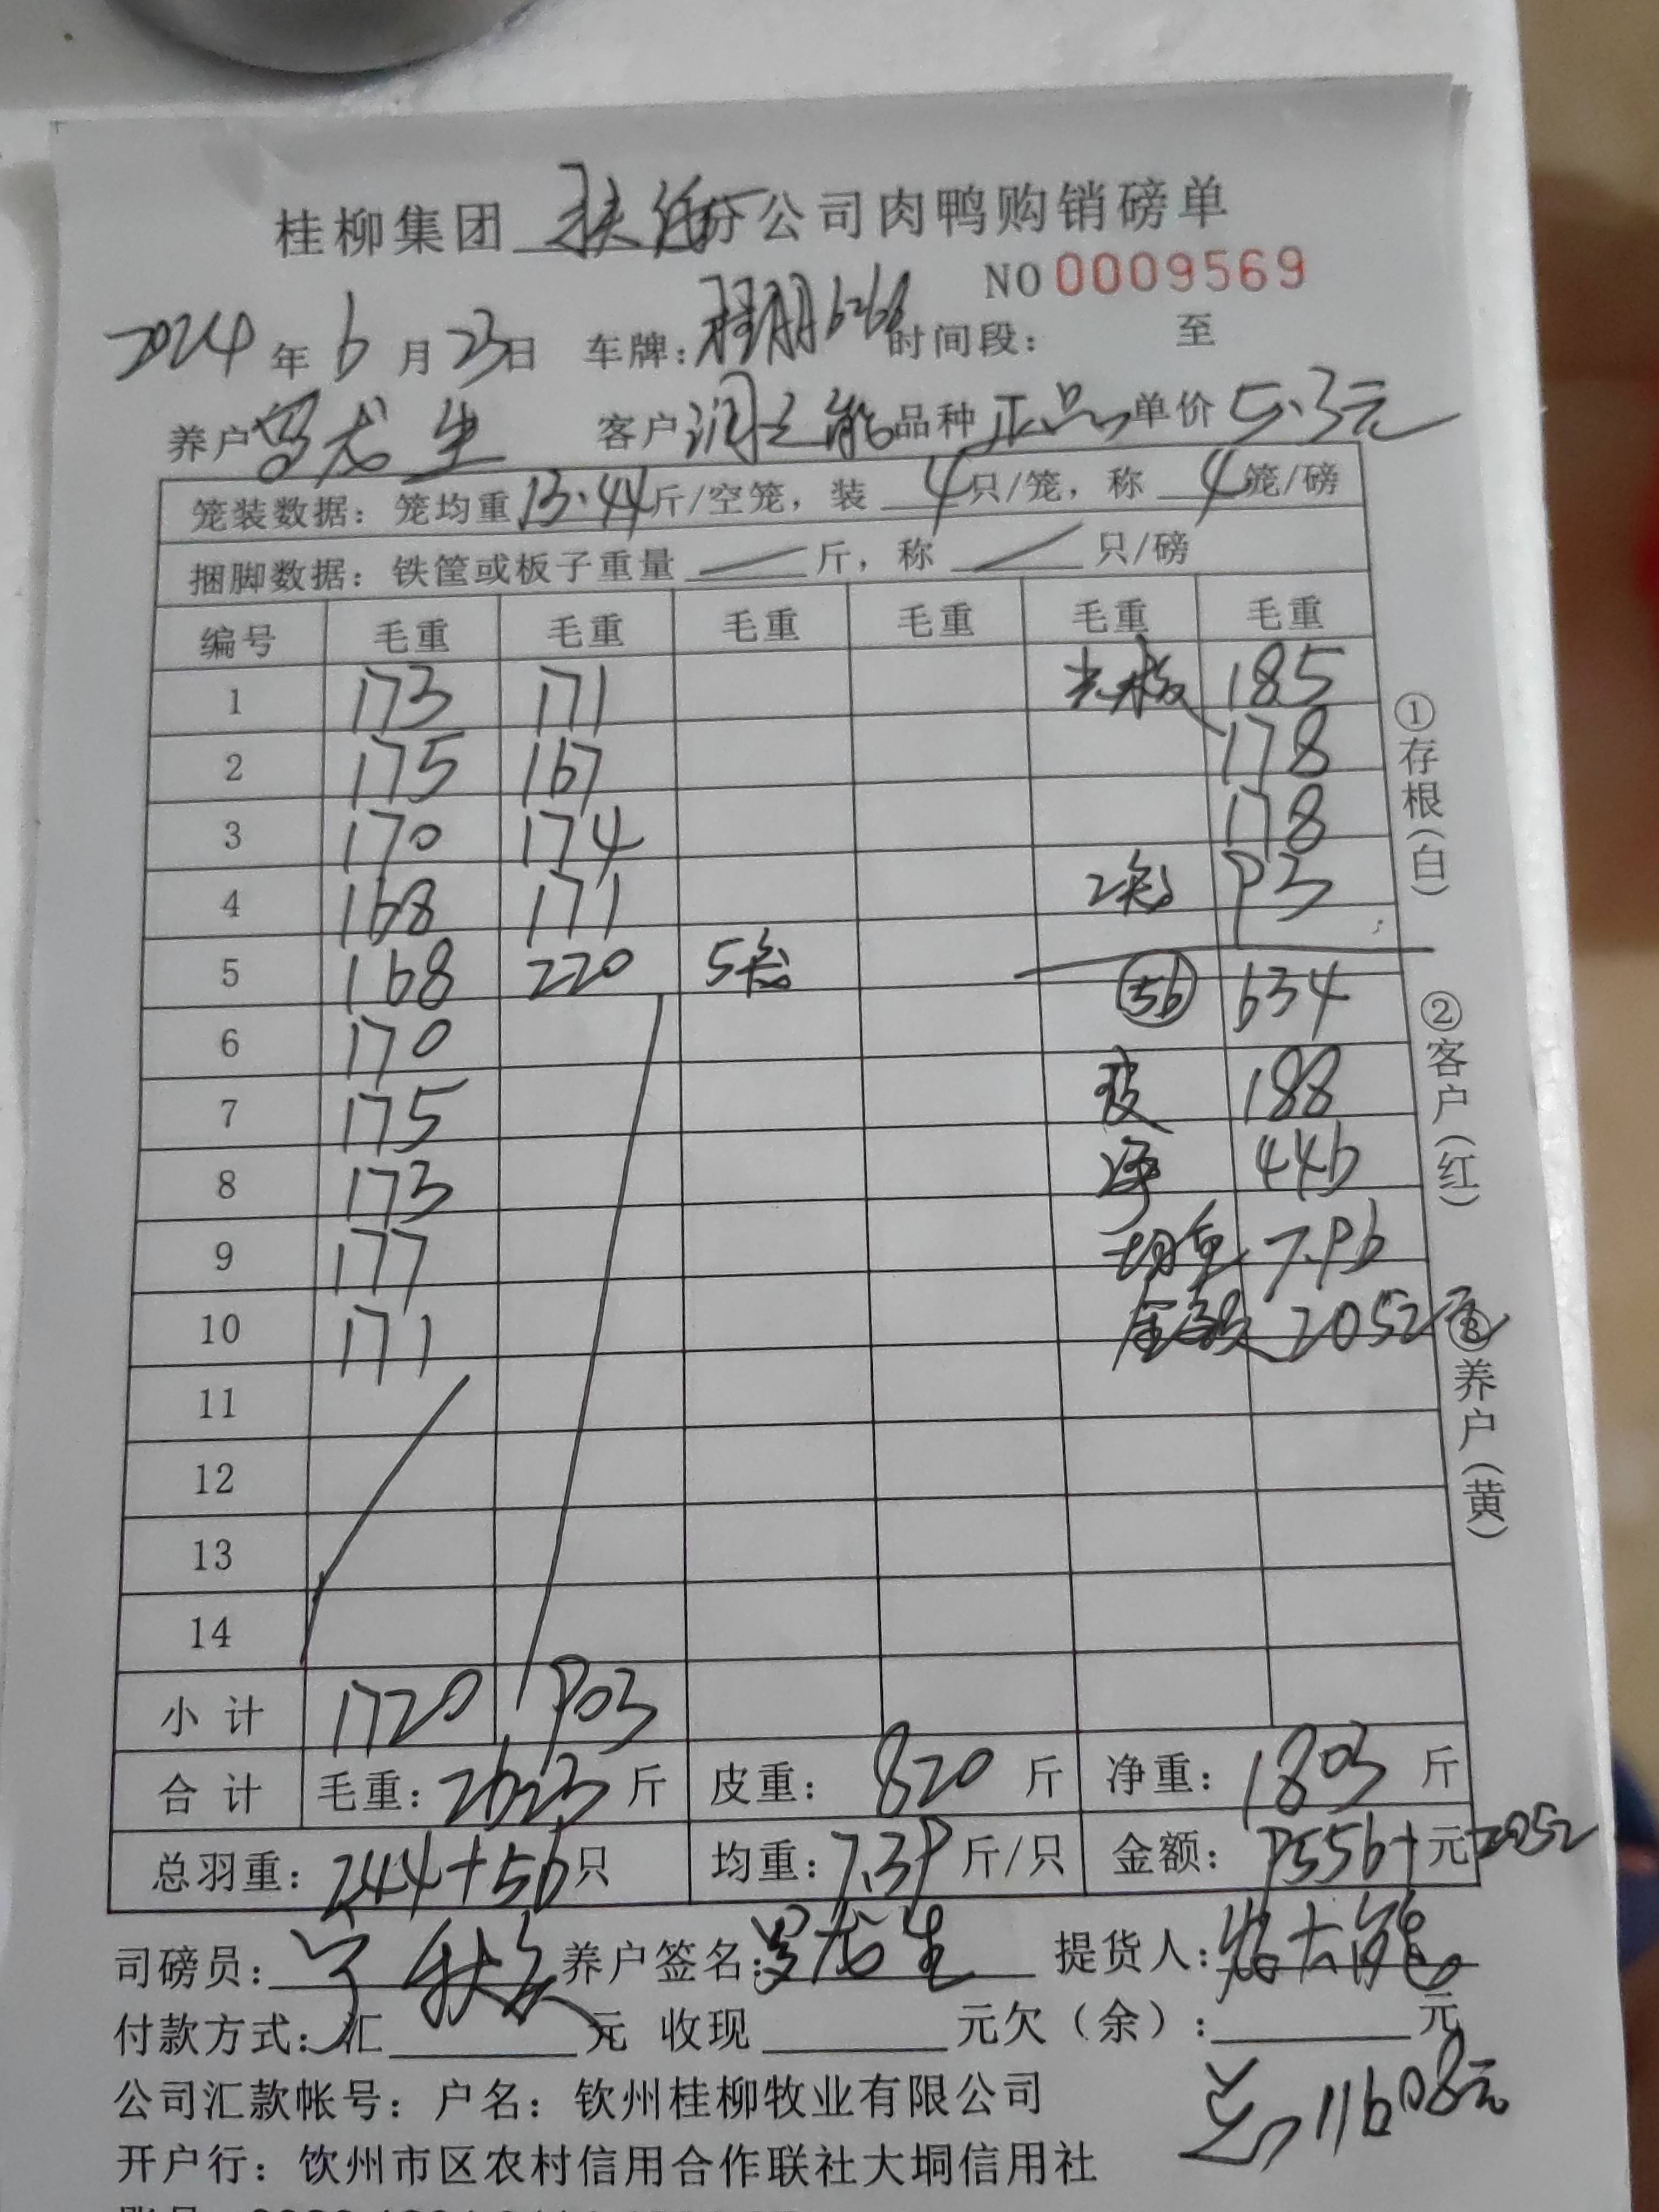 桂柳集团 扶绥分公司肉鸭购销磅单
NO 0009569
2024年6月23日 车牌: 6268 时间段: 至
养户 罗龙生 客户 润之能 品种 正品 单价 5.3元
笼装数据: 笼均重 13.44 斤/空笼, 装 4 只/笼, 称 4 笼/磅
捆脚数据: 铁筐或板子重量 斤, 称 只/磅
编号 毛重 毛重 毛重 毛重 毛重 毛重
1 173 171 185
2 175 167 178
3 170 174 178
4 168 171 2笼 93
5 168 220 5笼 56 634
6 170
7 175 皮 188
8 173 净 446
9 177 均重 7.96
10 171 金额 2052元
11
12
13
14
小计 1720 903
合计 毛重: 2623 斤 皮重: 820 斤 净重: 1803 斤
总羽重: 244+56 只 均重: 7.39 斤/只 金额: 9556+ 元 2052
司磅员: 养户签名: 罗龙生 提货人:
付款方式: 汇 元 收现 元欠(余): 元
总 11608元
公司汇款帐号: 户名: 钦州桂柳牧业有限公司
开户行: 饮州市区农村信用合作联社大垌信用社
①存根(白)
②客户(红)
③养户(黄)